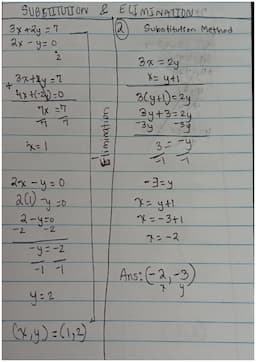 SUBSTITUTION & ELIMINATION
3x+2y=7
2x-y=0
·2
3x+2y=7
+
4x+(-2y)=0
7x =7
7 7
x=1
2x-y=0
2(1)-y=0
2-y=0
-2 -2
-y=-2
-1 -1
y=2
(x,y)=(1,2)
Elimination
② Substitution Method
3x=2y
x=y+1
3(y+1)=2y
3y+3=2y
-3y -3y
3=-y
-1 -1
-3=y
x=y+1
x=-3+1
x=-2
Ans: (-2,-3)
x y